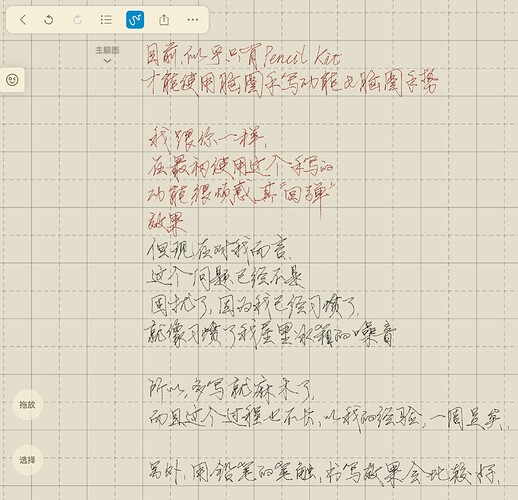 主脑图
目前,似乎只有Pencil Kit
才能使用脑图手写功能及脑图手势
我跟你一样,
在最初使用这个手写的
功能很烦感其“回弹”
效果
但现在对我而言,
这个问题已经不是
困扰了,因为我已经习惯了,
就像习惯了我屋里冰箱的噪音
所以,多写就麻木了,
而且这个过程也不长,以我的经验,一周足矣,
另外,用铅笔的笔触,书写效果会比较好,
拖放
选择